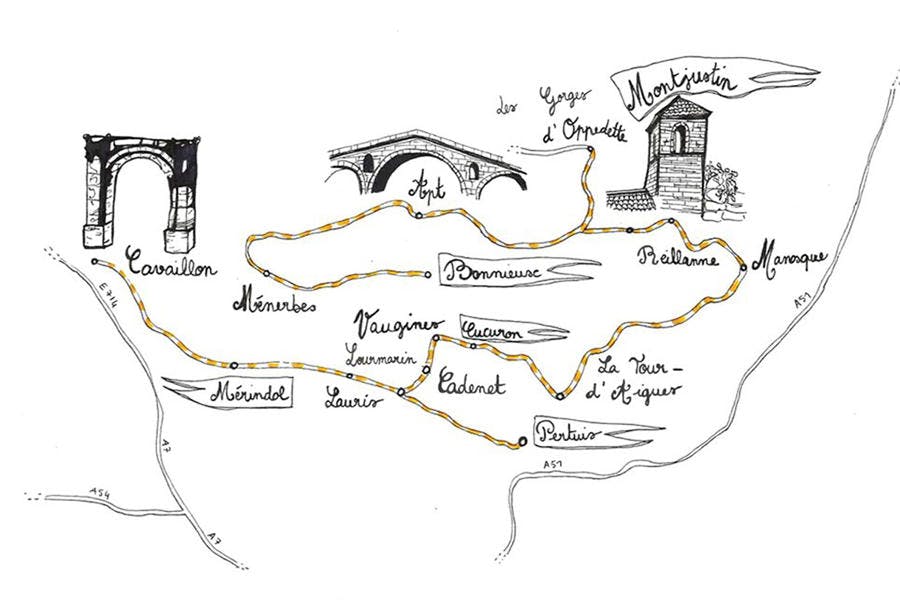 Les Gorges
d'Oppedette
Montjustin
Apt
Cavaillon
Bonnieux
Reillanne
Manosque
Ménerbes
E714
A51
Vaugines
Cucuron
Lourmarin
Cadenet
La Tour-
d'Aigues
Mérindol
Lauris
Pertuis
A7
A51
A54
A7